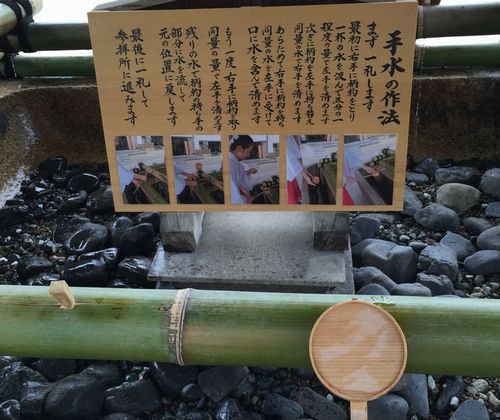 手水の作法
まず一礼します
最初に右手に柄杓をとり
一杯の水を汲んで五分の一
程度の量で左手を清めます
次ぎに柄杓を左手に持ち替え
同量の水で右手を清めます
あらためて右手に柄杓を持ち
同量の水を左手に受けて
口に水を含んで清めます
もう一度右手に柄杓を持ち
同量の量で左手を清めます
残りの水で柄杓の持ち手の
部分に水を流し
元の位置に戻します
最後に一礼して
参拝所に進みます